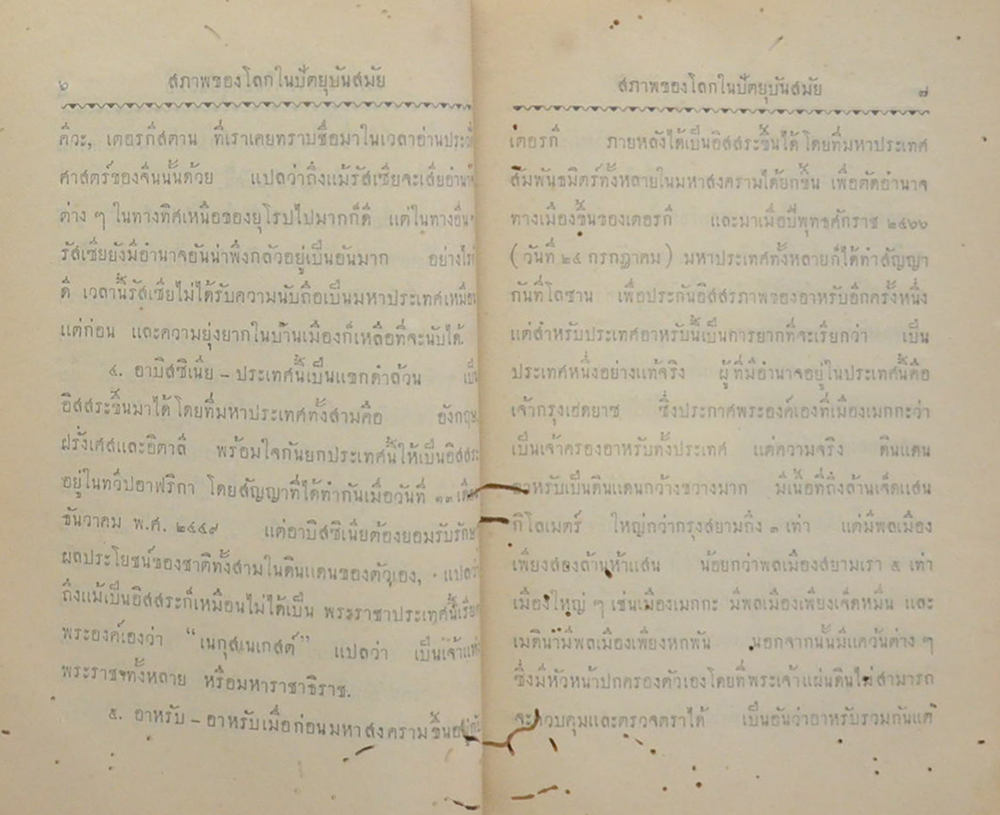 ๖
สภาพของโลกในปัตยุบันสมัย
คิวะ, เตอรกีสตาน ที่เราเคยทราบชื่อมาในเวลาอ่านประวัติ
ศาสตร์ของจีนนั้นด้วย แปลว่าถึงแม้รัสเซียจะเสียอำนาจ
ต่าง ๆ ในทางทิศเหนือของยุโรปไปมากก็ดี แต่ในทางอื่น
รัสเซียยังมีอำนาจอันน่าพึงกลัวอยู่เป็นอันมาก อย่างไร
ดี เวลานี้รัสเซียไม่ได้รับความนับถือเป็นมหาประเทศเหมือน
แต่ก่อน และความยุ่งยากในบ้านเมืองก็เหลือที่จะนับได้
๔. อาบิสซิเนีย – ประเทศนี้เป็นแขกดำล้วน เป็น
อิสสระขึ้นมาได้โดยที่มหาประเทศทั้งสามคือ อังกฤษ
ฝรั่งเศสและอิตาลี พร้อมใจกันยกประเทศนี้ให้เป็นอิสสระ
อยู่ในทวีปอาฟริกา โดยสัญญาที่ได้ทำกันเมื่อวันที่ ๑๓ เดือน
ธันวาคม พ.ศ. ๒๔๔๙ แต่อาบิสซิเนียต้องยอมรับรักษา
ผลประโยชน์ของชาติทั้งสามในดินแดนของตัวเอง, แปลว่า
ถึงแม้เป็นอิสสระก็เหมือนไม่ได้เป็น พระราชาประเทศนี้เรียก
พระองค์เองว่า “เนกุสเนเกสต์” แปลว่า เป็นเจ้าแห่ง
พระราชาทั้งหลาย หรือมหาราชาธิราช.
๕. อาหรับ – อาหรับเมื่อก่อนมหาสงครามขึ้นอยู่กับ
สภาพของโลกในปัตยุบันสมัย
๗
เตอรกี ภายหลังได้เป็นอิสสระขึ้นได้ โดยที่มหาประเทศ
สัมพันธมิตร์ทั้งหลายในมหาสงครามได้ยกขึ้น เพื่อตัดอำนาจ
ทางเมืองขึ้นของเตอรกี และมาเมื่อปีพุทธศักราช ๒๔๖๖
(วันที่ ๒๔ กรกฎาคม) มหาประเทศทั้งหลายก็ได้ทำสัญญา
กันที่โลซาน เพื่อประกันอิสสรภาพของอาหรับอีกครั้งหนึ่ง
แต่สำหรับประเทศอาหรับนี้เป็นการยากที่จะเรียกว่า เป็น
ประเทศหนึ่งอย่างแท้จริง ผู้ที่มีอำนาจอยู่ในประเทศนี้คือ
เจ้ากรุงเฮดยาซ ซึ่งประกาศพระองค์เองที่เมืองเมกกะว่า
เป็นเจ้าครองอาหรับทั้งประเทศ แต่ความจริง ดินแดน
อาหรับเป็นดินแดนกว้างขวางมาก มีเนื้อที่ถึงล้านเจ็ดแสน
กิโลเมตร์ ใหญ่กว่ากรุงสยามถึง ๓ เท่า แต่มีพลเมือง
เพียงสองล้านห้าแสน น้อยกว่าพลเมืองสยามเรา ๕ เท่า
เมืองใหญ่ ๆ เช่นเมืองเมกกะ มีพลเมืองเพียงเจ็ดหมื่น และ
เมดินามีพลเมืองเพียงหกพัน นอกจากนั้นมีแคว้นต่าง ๆ
ซึ่งมีหัวหน้าปกครองตัวเองโดยที่พระเจ้าแผ่นดินไม่สามารถ
จะควบคุมและตรวจตราได้ เป็นอันว่าอาหรับรวมกันแต่